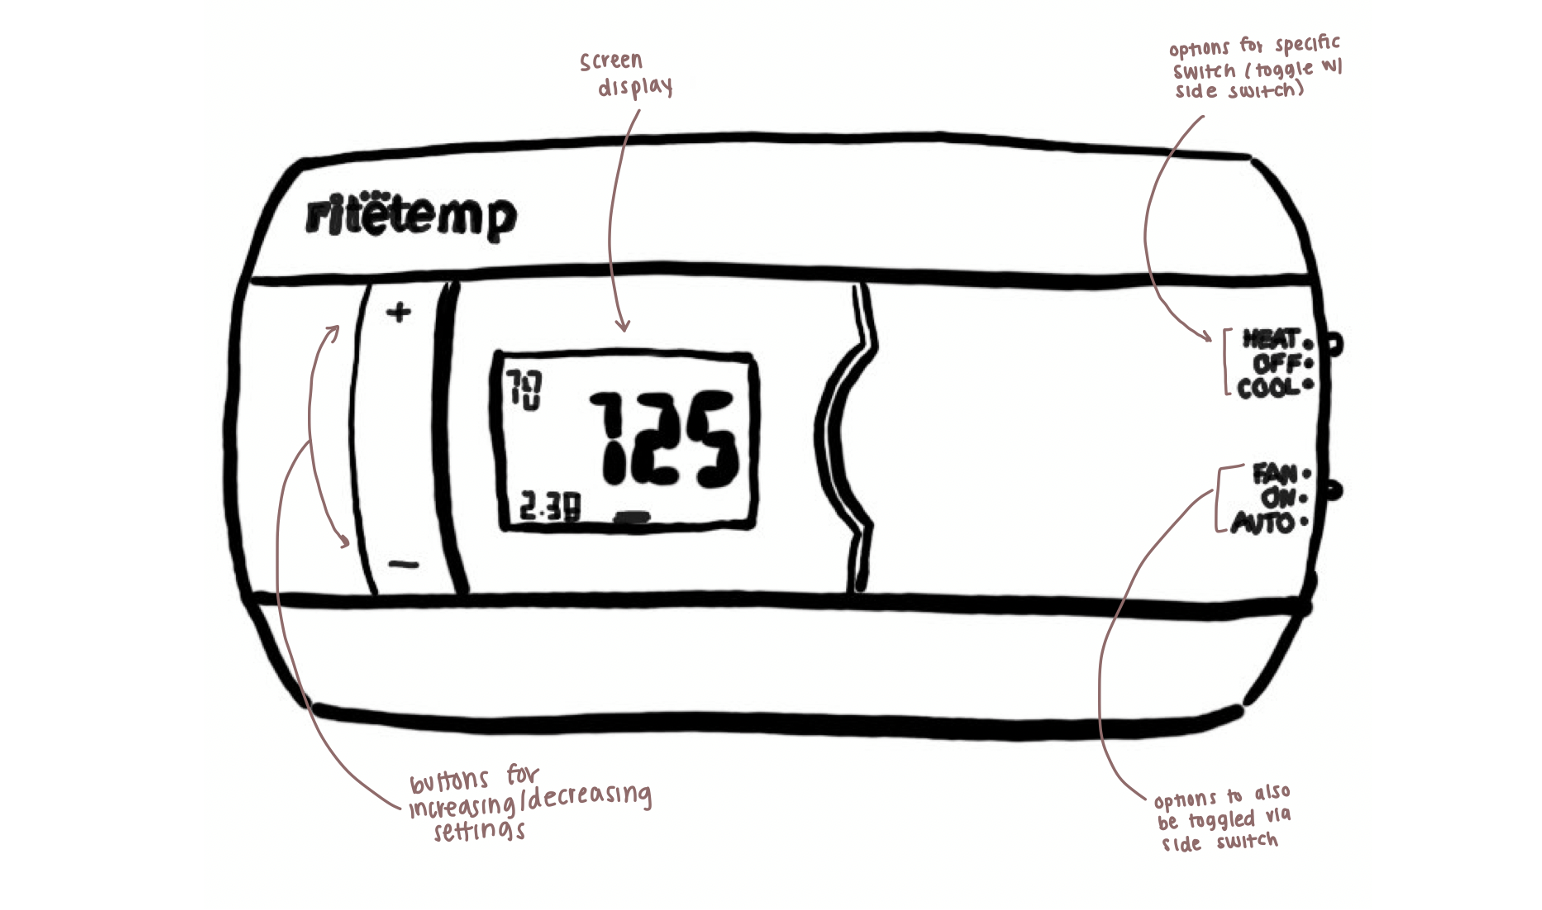 screen
display
options for specific
switch (toggle w/
side switch)
ritëtemp
+
HEAT
OFF
COOL
70
725
2.38
FAN
ON
AUTO
−
buttons for
increasing/decreasing
settings
options to also
be toggled via
side switch